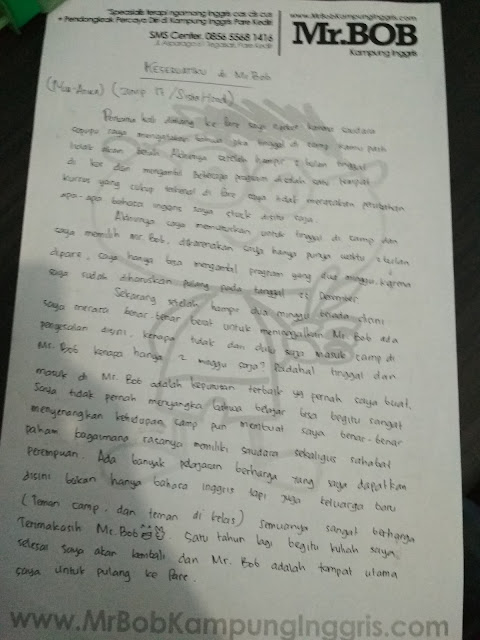 "Spesialis terapi ngomong Inggris cas cis cus
+ Pendongkrak Percaya Diri di Kampung Inggris Pare Kediri
SMS Center. 0856 5568 1416
Jl. Asparaga 61 Tegalsari, Pare Kediri
www.MrBobKampungInggris.com
Mr.BOB
Kampung Inggris
KESERUANKU di Mr Bob
(Camp 17 /
Pertama kali datang ke Pare saya karena saudara
sepupu saya mengatakan bahwa jika tinggal di camp kamu pasti
tidak akan betah. Akhirnya setelah hampir 2 bulan tinggal
di kos dan mengambil beberapa program di salah satu tempat
kursus yang cukup terkenal di Pare saya tidak merasakan perubahan
apa-apa bahasa inggris saya stuck disitu saja.
Akhirnya saya memutuskan untuk tinggal di camp dan
saya memilih Mr. Bob, dikarenakan saya hanya punya waktu 2 bulan
dipare, saya hanya bisa mengambil program yang dua minggu. karena
saya sudah diharuskan pulang pada tanggal 25 Desember
Sekarang setelah hampir dua minggu berada disini
saya merasa benar-benar berat untuk meninggalkan Mr. Bob ada
penyesalan disini, kenapa tidak dari dulu saya masuk camp di
Mr. Bob kenapa hanya 2 minggu saja? Padahal tinggal dan
masuk di Mr. Bob adalah keputusan terbaik yg pernah saya buat.
Saya tidak pernah menyangka bahwa belajar bisa begitu sangat
menyenangkan kehidupan camp pun membuat saya benar-benar
paham bagaimana rasanya memiliki saudara sekaligus sahabat
perempuan. Ada banyak pelajaran berharga yang saya dapatkan
disini bukan hanya bahasa inggris tapi juga keluarga baru
(teman camp, dan teman di kelas) semuanya sangat berharga
Terimakasih Mr. Bob. Satu tahun lagi begitu kuliah saya
selesai saya akan kembali dan Mr. Bob adalah tempat utama
saya untuk pulang ke Pare.
www.MrBobKampungInggris.com